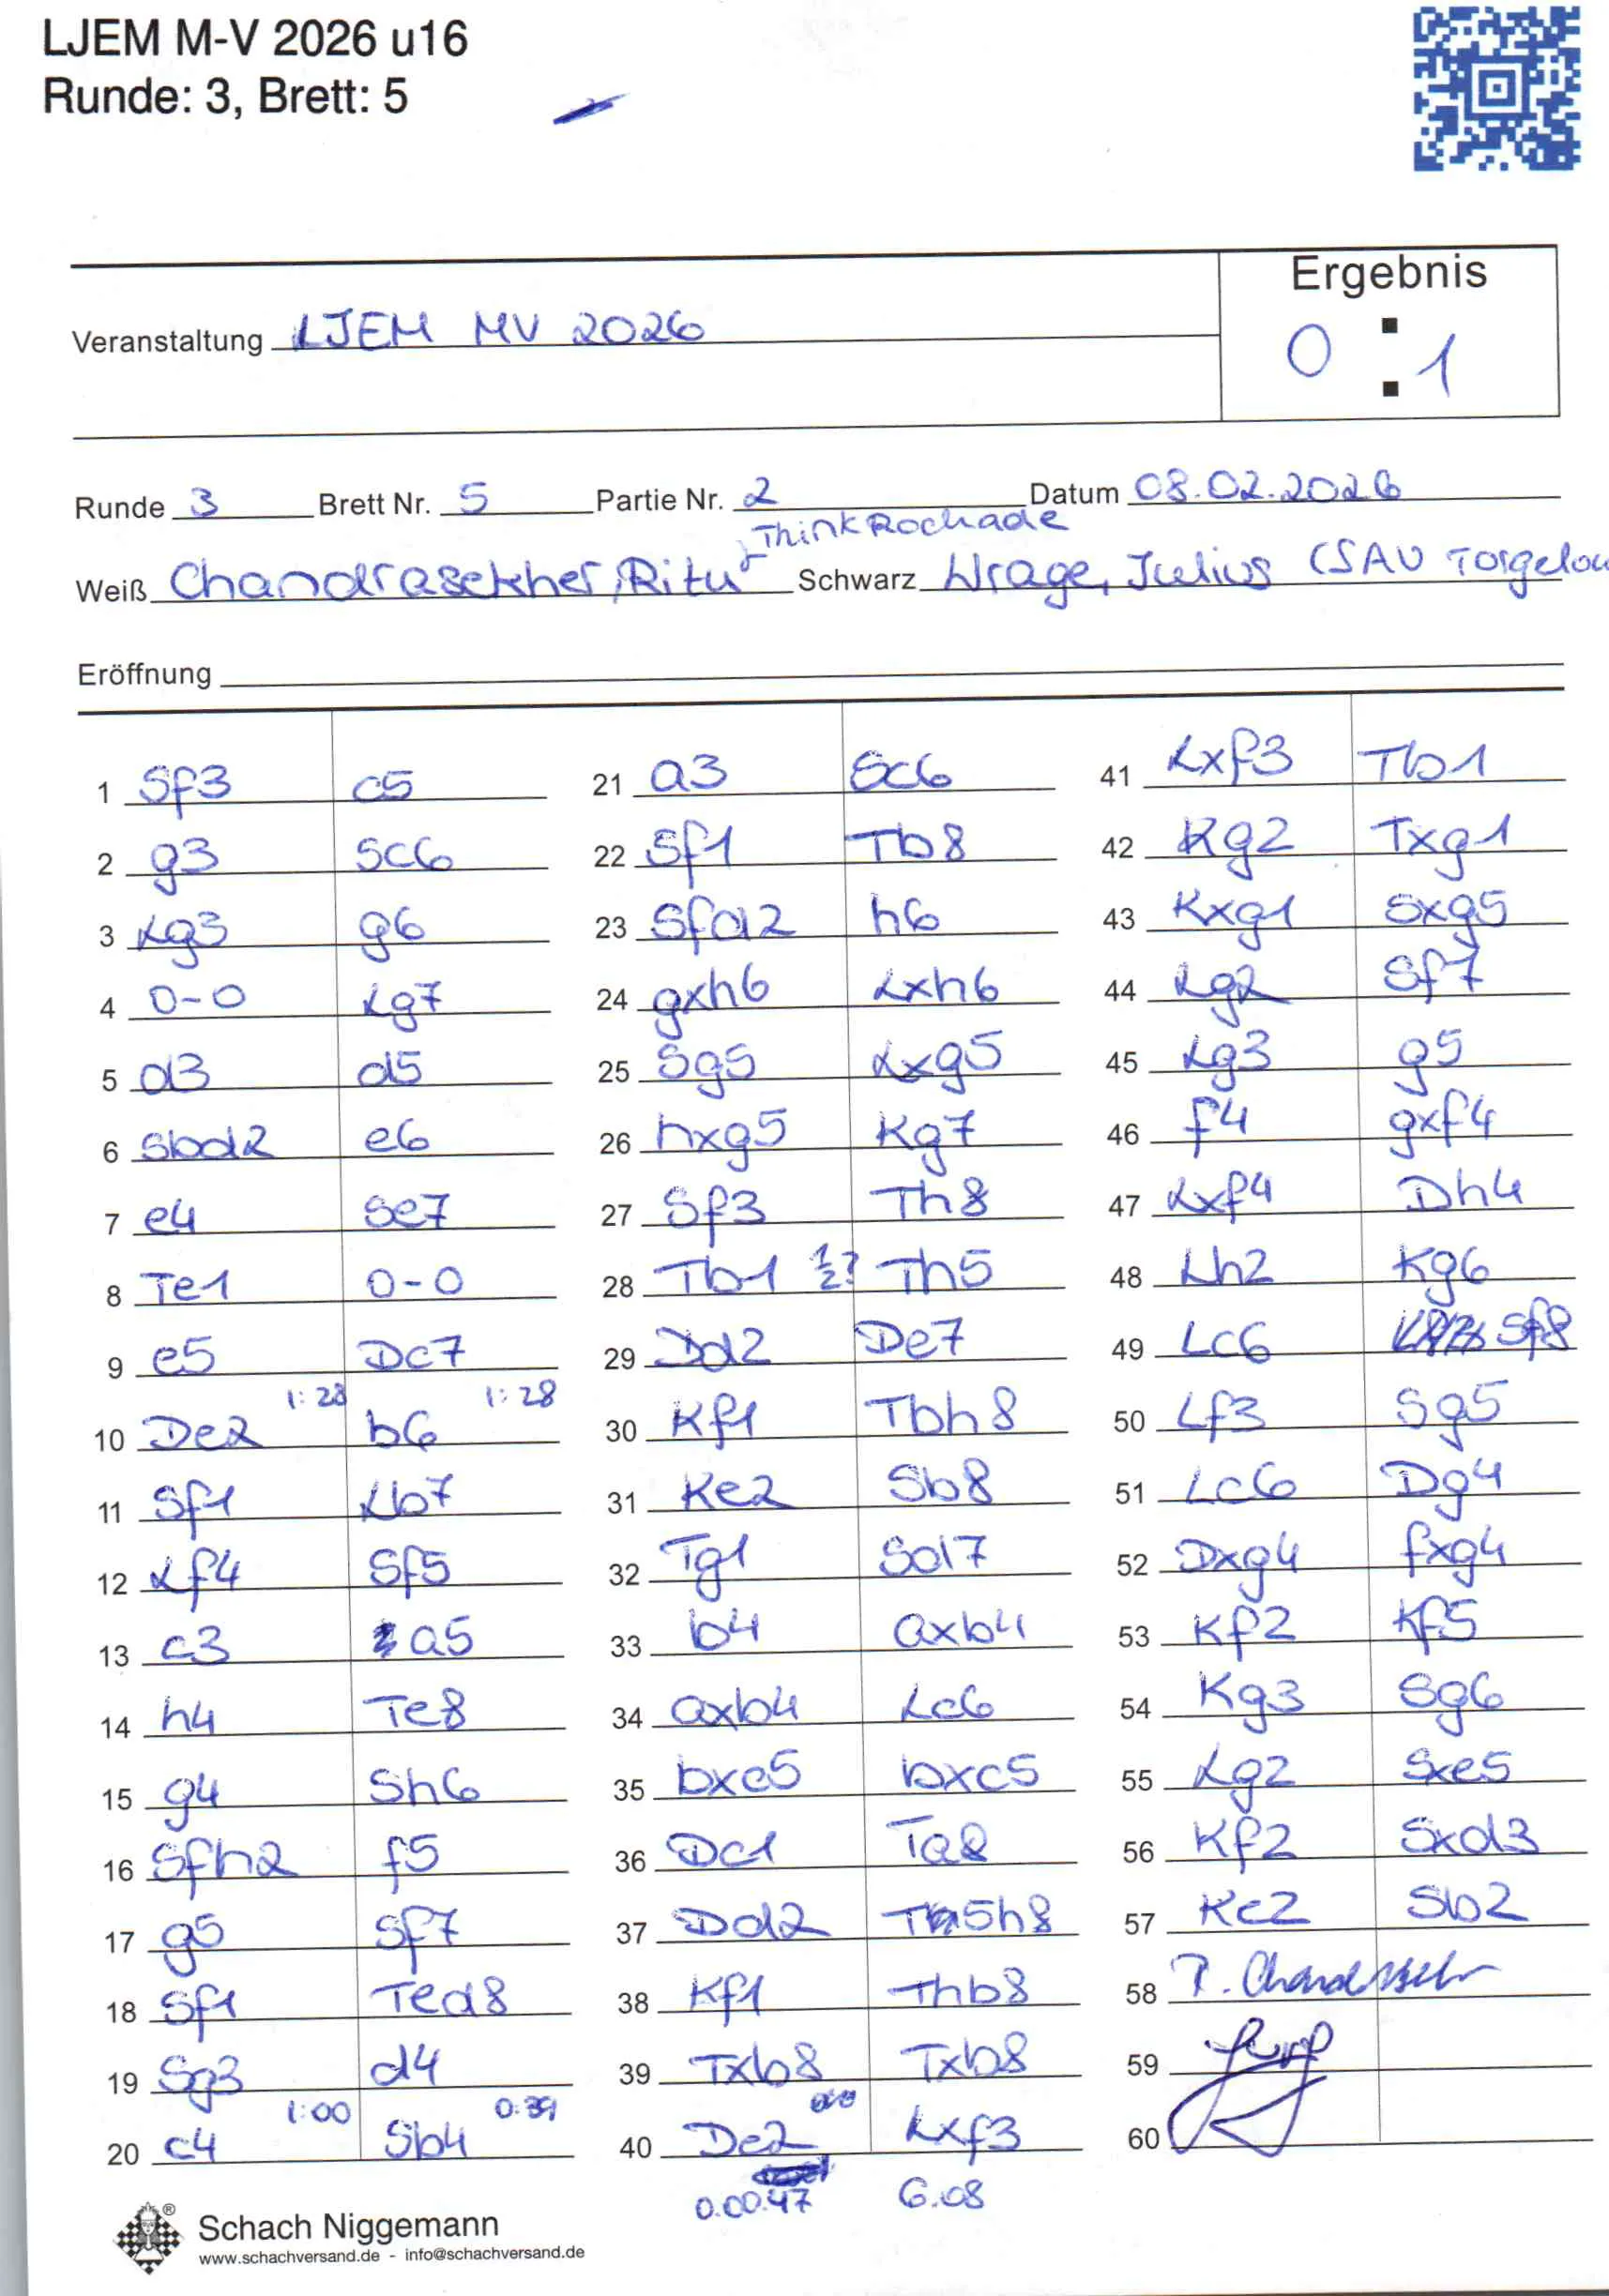 LJEM M-V 2026 u16
Runde: 3, Brett: 5
Ergebnis
Veranstaltung LJEM MV 2026
0 : 1
Runde 3 Brett Nr. 5 Partie Nr. 2 Datum 08.02.2026
ThinkRochade
Weiß Chandrasekher, Ritu Schwarz Wrage, Julius (SAV Torgelow
Eröffnung
1 Sf3 c5
2 g3 Sc6
3 Lg3 g6
4 0-0 Lg7
5 d3 d5
6 Sbd2 e6
7 e4 Se7
8 Te1 0-0
9 e5 Dc7
1:28 1:28
10 De2 b6
11 Sf1 Lb7
12 Lf4 Sf5
13 c3 a5
14 h4 Te8
15 g4 Sh6
16 Sfh2 f5
17 g5 Sf7
18 Sf1 Ted8
19 Sg3 d4
1:00 0:39
20 c4 Sb4
21 a3 Sc6
22 Sf1 Tb8
23 Sfd2 h6
24 gxh6 Lxh6
25 Sg5 Lxg5
26 hxg5 Kg7
27 Sf3 Th8
28 Tb1 ½? Th5
29 Dd2 De7
30 Kf1 Tbh8
31 Ke2 Sb8
32 Tg1 Sd7
33 b4 axb4
34 axb4 Lc6
35 bxc5 bxc5
36 Dc1 Ta8
37 Dd2 T5h8
38 Kf1 Thb8
39 Txb8 Txb8
40 De2 Lxf3
0.00.47 6.08
41 Lxf3 Tb1
42 Kg2 Txg1
43 Kxg1 Sxg5
44 Lg2 Sf7
45 Lg3 g5
46 f4 gxf4
47 Lxf4 Dh4
48 Lh2 Kg6
49 Lc6 Sf8
50 Lf3 Sg5
51 Lc6 Dg4
52 Dxg4 fxg4
53 Kf2 Kf5
54 Kg3 Sg6
55 Lg2 Sxe5
56 Kf2 Sxd3
57 Ke2 Sb2
58
59
60
Schach Niggemann
www.schachversand.de - info@schachversand.de